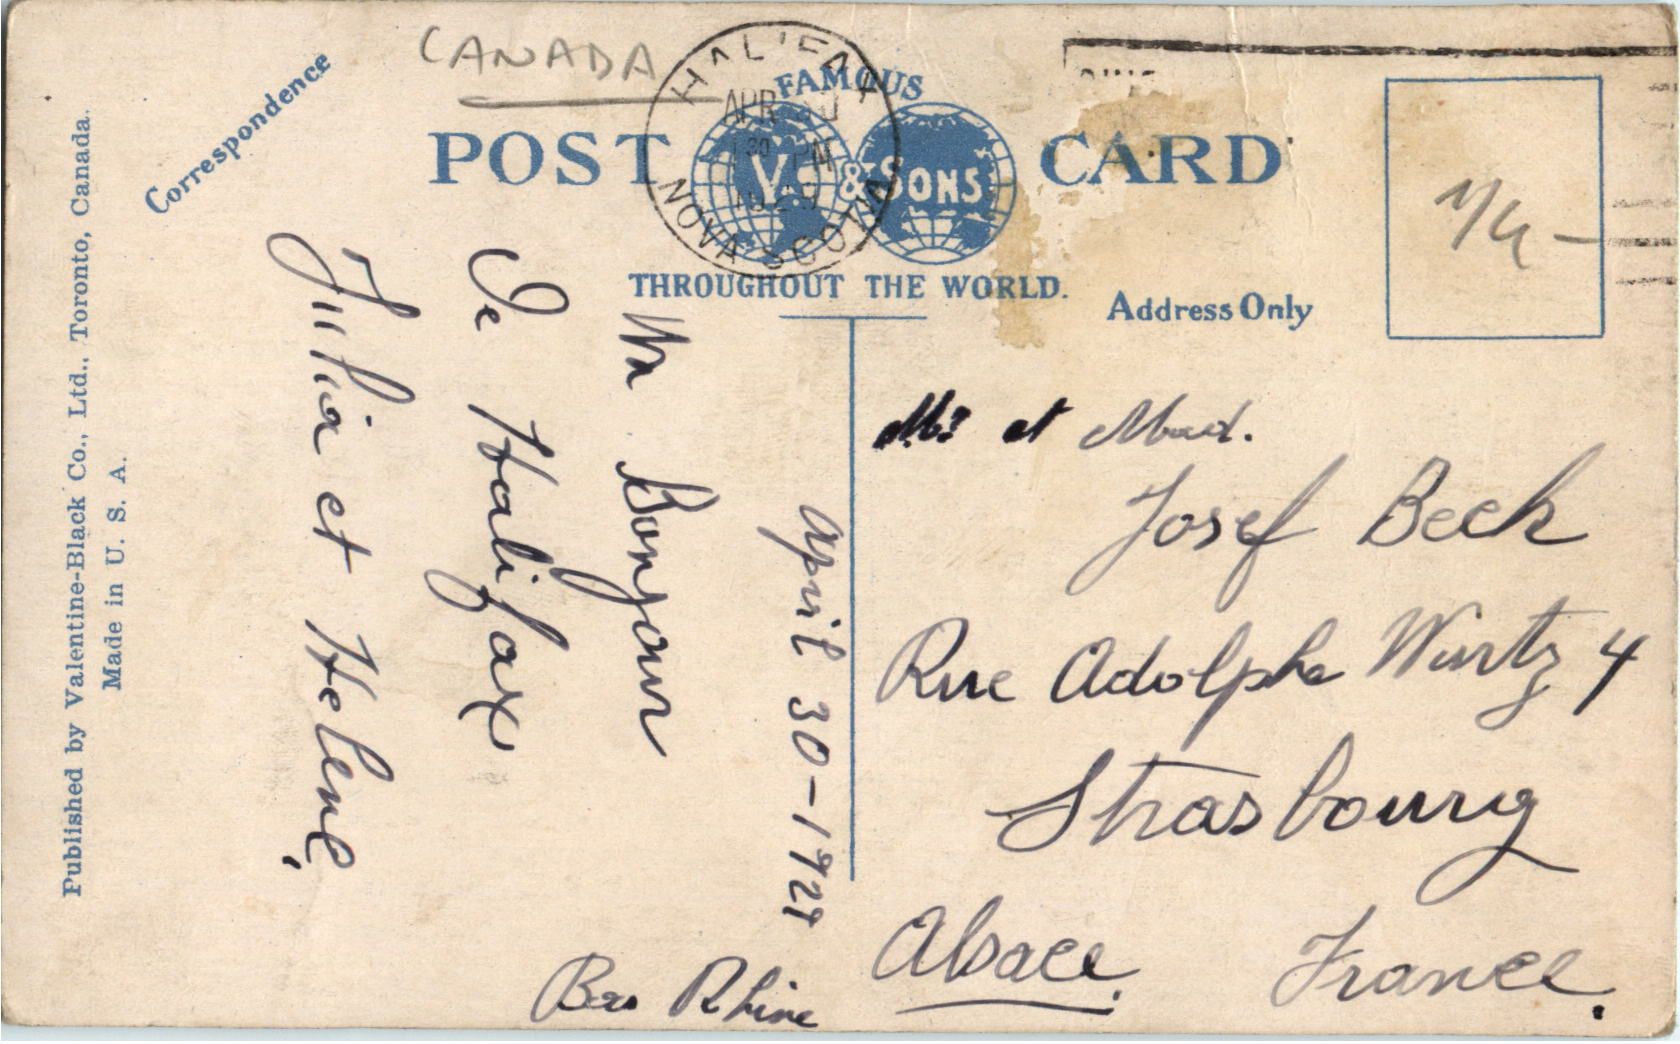 CANADA
HALIFAX
APR 30
30 PM
1929
NOVA SCOTIA
FAMOUS
POST CARD
V. & SONS
THROUGHOUT THE WORLD.
Address Only
Correspondence
Published by Valentine-Black Co., Ltd., Toronto, Canada.
Made in U. S. A.
April 30-1929
Un Bonjour
De Halifax
Julia et Helene
Mr et Mad.
Josef Beck
Rue Adolphe Wurtz 4
Strasbourg
Alsace. France.
Bas Rhine